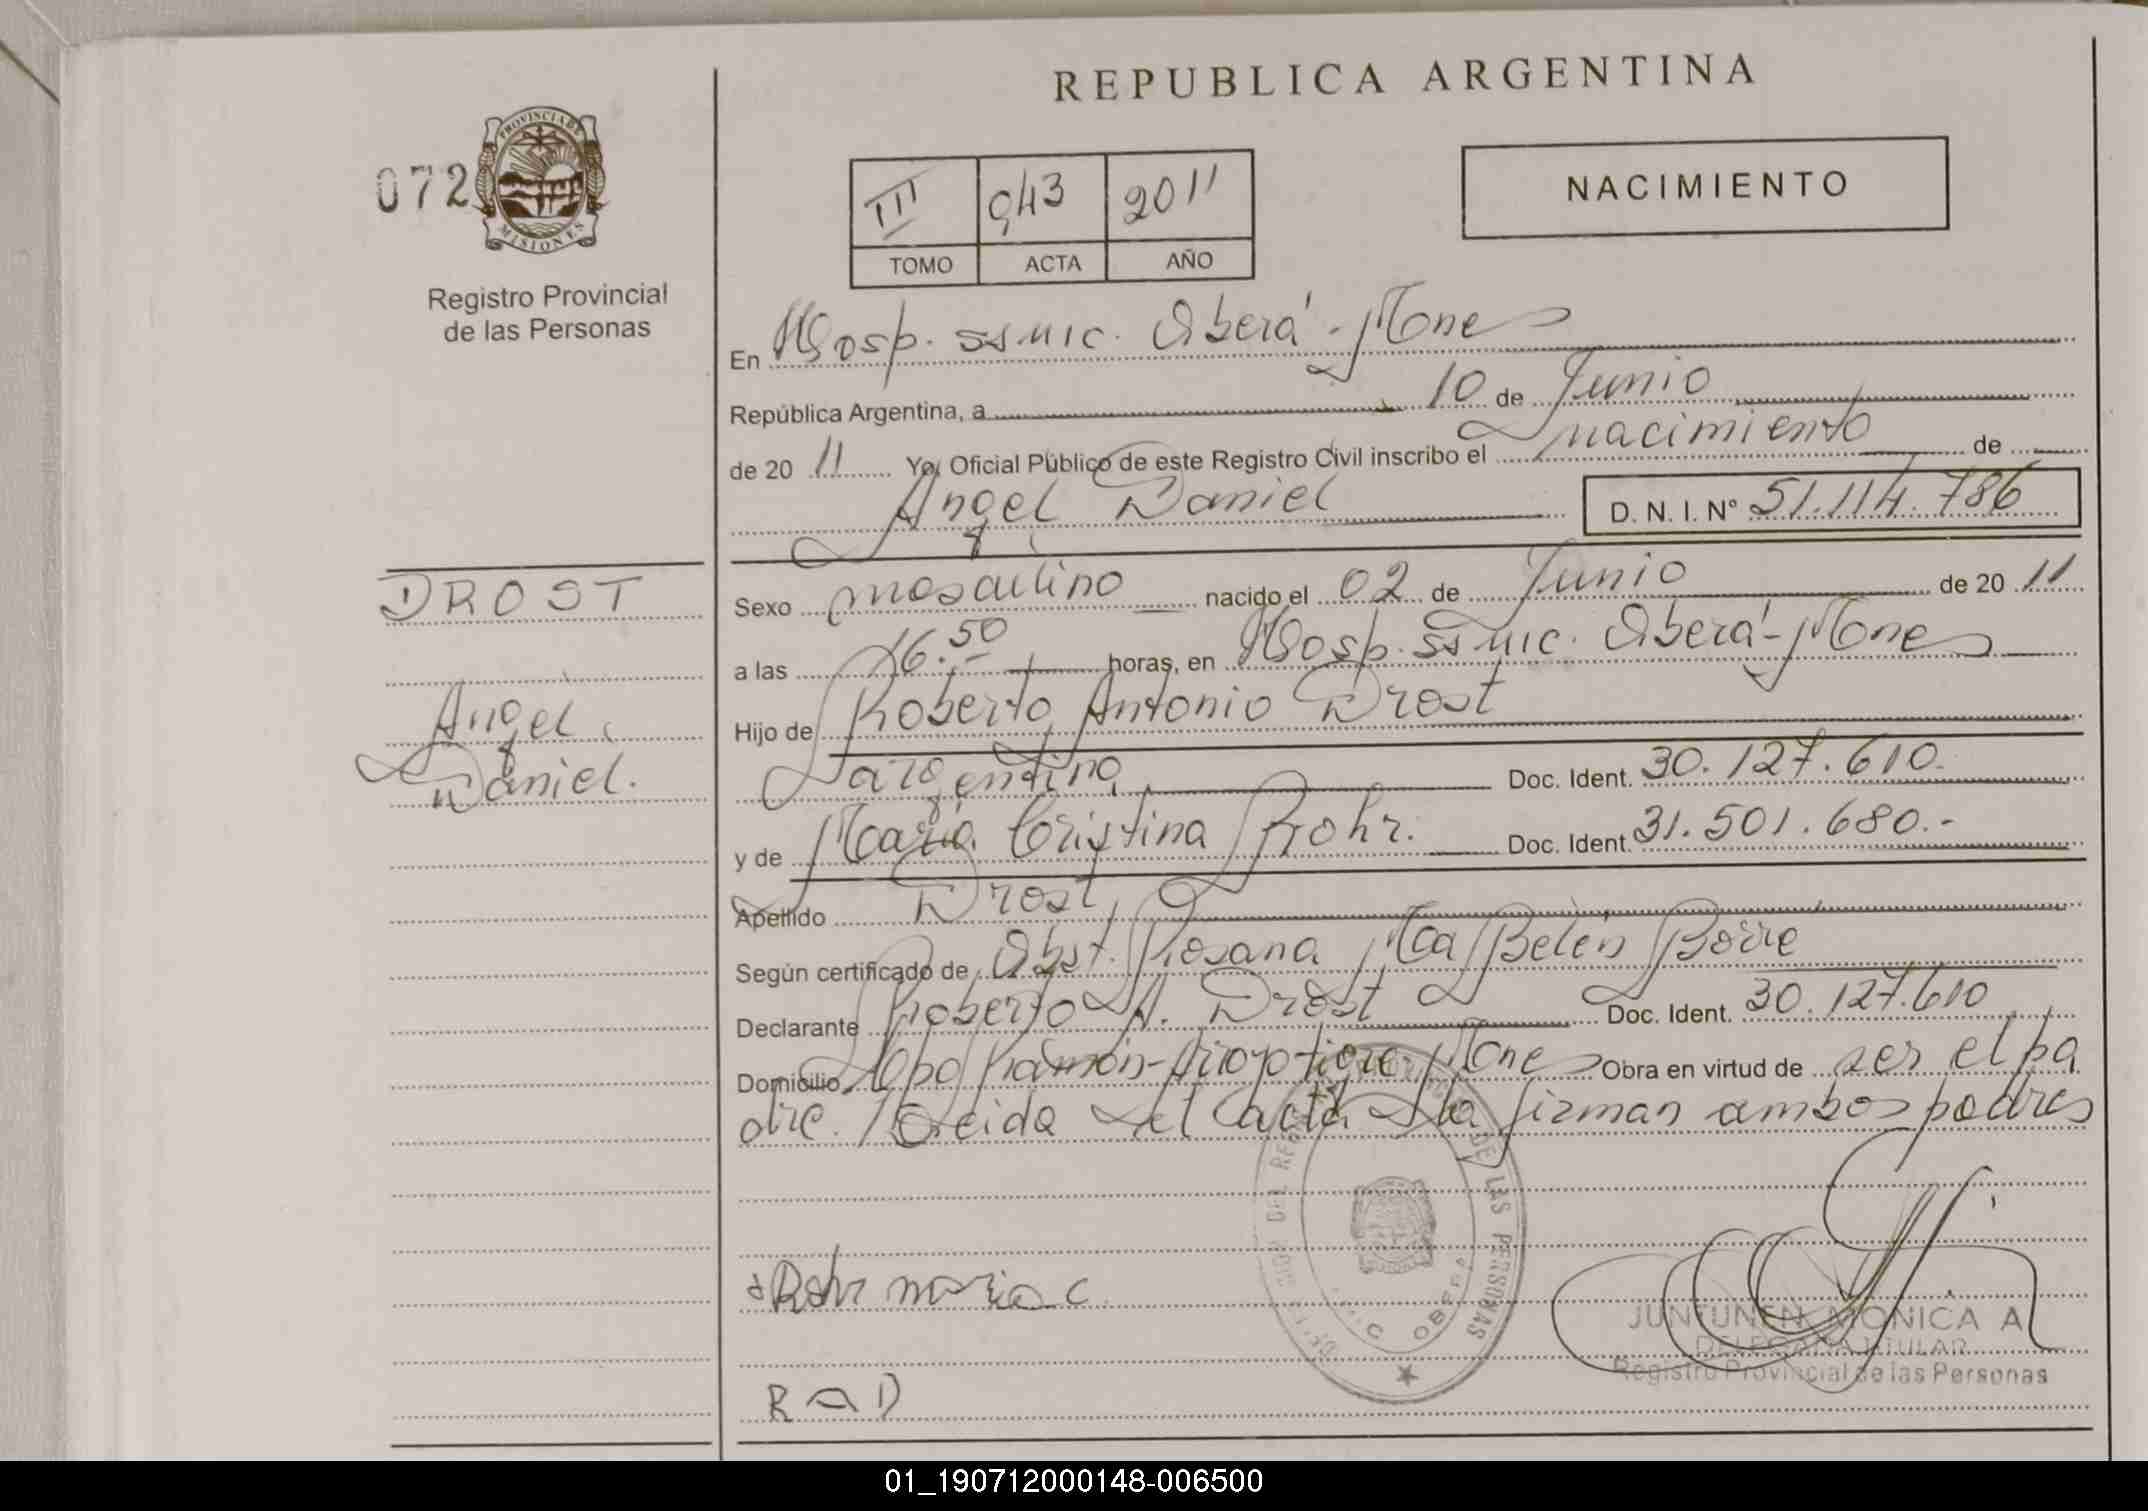 REPUBLICA ARGENTINA
072
PROVINCIA DE
MISIONES
Registro Provincial
de las Personas
III 943 2011
TOMO ACTA AÑO
NACIMIENTO
En Hosp. SSMIC. Oberá - Mones
República Argentina, a 10 de Junio
de 20 11 Yo, Oficial Público de este Registro Civil inscribo el nacimiento de
Angel Daniel D. N. I. Nº 51.114.786
DROST
Angel
Daniel.
Sexo masculino nacido el 02 de Junio de 20 11
a las 16.50 horas, en Hosp. SSMIC. Oberá - Mones
Hijo de Roberto Antonio Drost
argentino Doc. Ident. 30.127.610.
y de María Cristina Rohr. Doc. Ident. 31.501.680.-
Apellido Drost
Según certificado de Obst. Rosana Ma Belén Borre
Declarante Roberto A. Drost Doc. Ident. 30.127.610
Domicilio Cpo Ramón - Mones Obra en virtud de ser el pa
dre. Leida el acta la firman ambos padres
Rohr maria C.
R A D
REGISTRO DE LAS PERSONAS
OBERA
JUNTUNEN MONICA A
DELEGADA TITULAR
Registro Provincial de las Personas
01_190712000148-006500